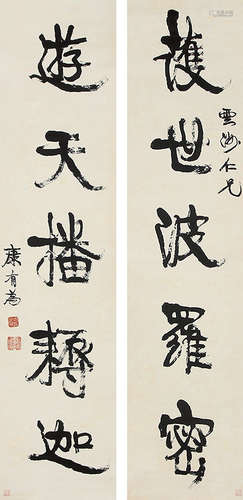 護世波羅密
雲台仁兄
遊天搔耨迦
康有為